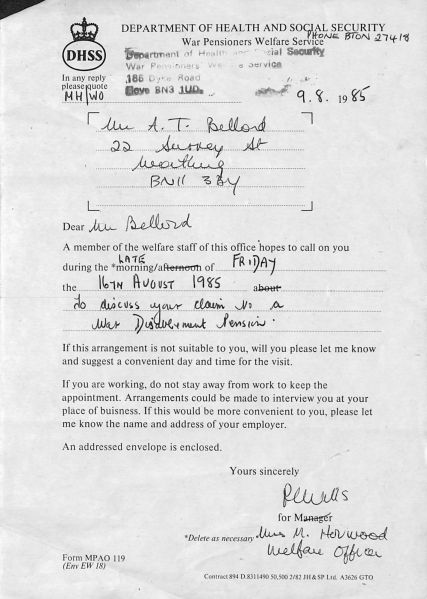 DEPARTMENT OF HEALTH AND SOCIAL SECURITY
PHONE BTON 27418
War Pensioners Welfare Service
DHSS
Department of Health and Social Security
War Pensioners' Welfare Service
186 Dyke Road
Hove BN3 1UD.
In any reply
please quote
MH/WO
9.8. 1985
Mr A. T. Bellord
22 Surrey St
Worthing
BN11 3BY
Dear Mr Bellord
A member of the welfare staff of this office hopes to call on you
during the *LATE morning/afternoon of FRIDAY
the 16TH AUGUST 1985 about
to discuss your claim to a
War Disablement Pension.
If this arrangement is not suitable to you, will you please let me know
and suggest a convenient day and time for the visit.
If you are working, do not stay away from work to keep the
appointment. Arrangements could be made to interview you at your
place of buisness. If this would be more convenient to you, please let
me know the name and address of your employer.
An addressed envelope is enclosed.
Yours sincerely
for Manager
*Delete as necessary
Mrs M. Horwood
Welfare Officer
Form MPAO 119
(Env EW 18)
Contract 894 D.8311490 50,500 2/82 JH&SP Ltd. A3626 GTO